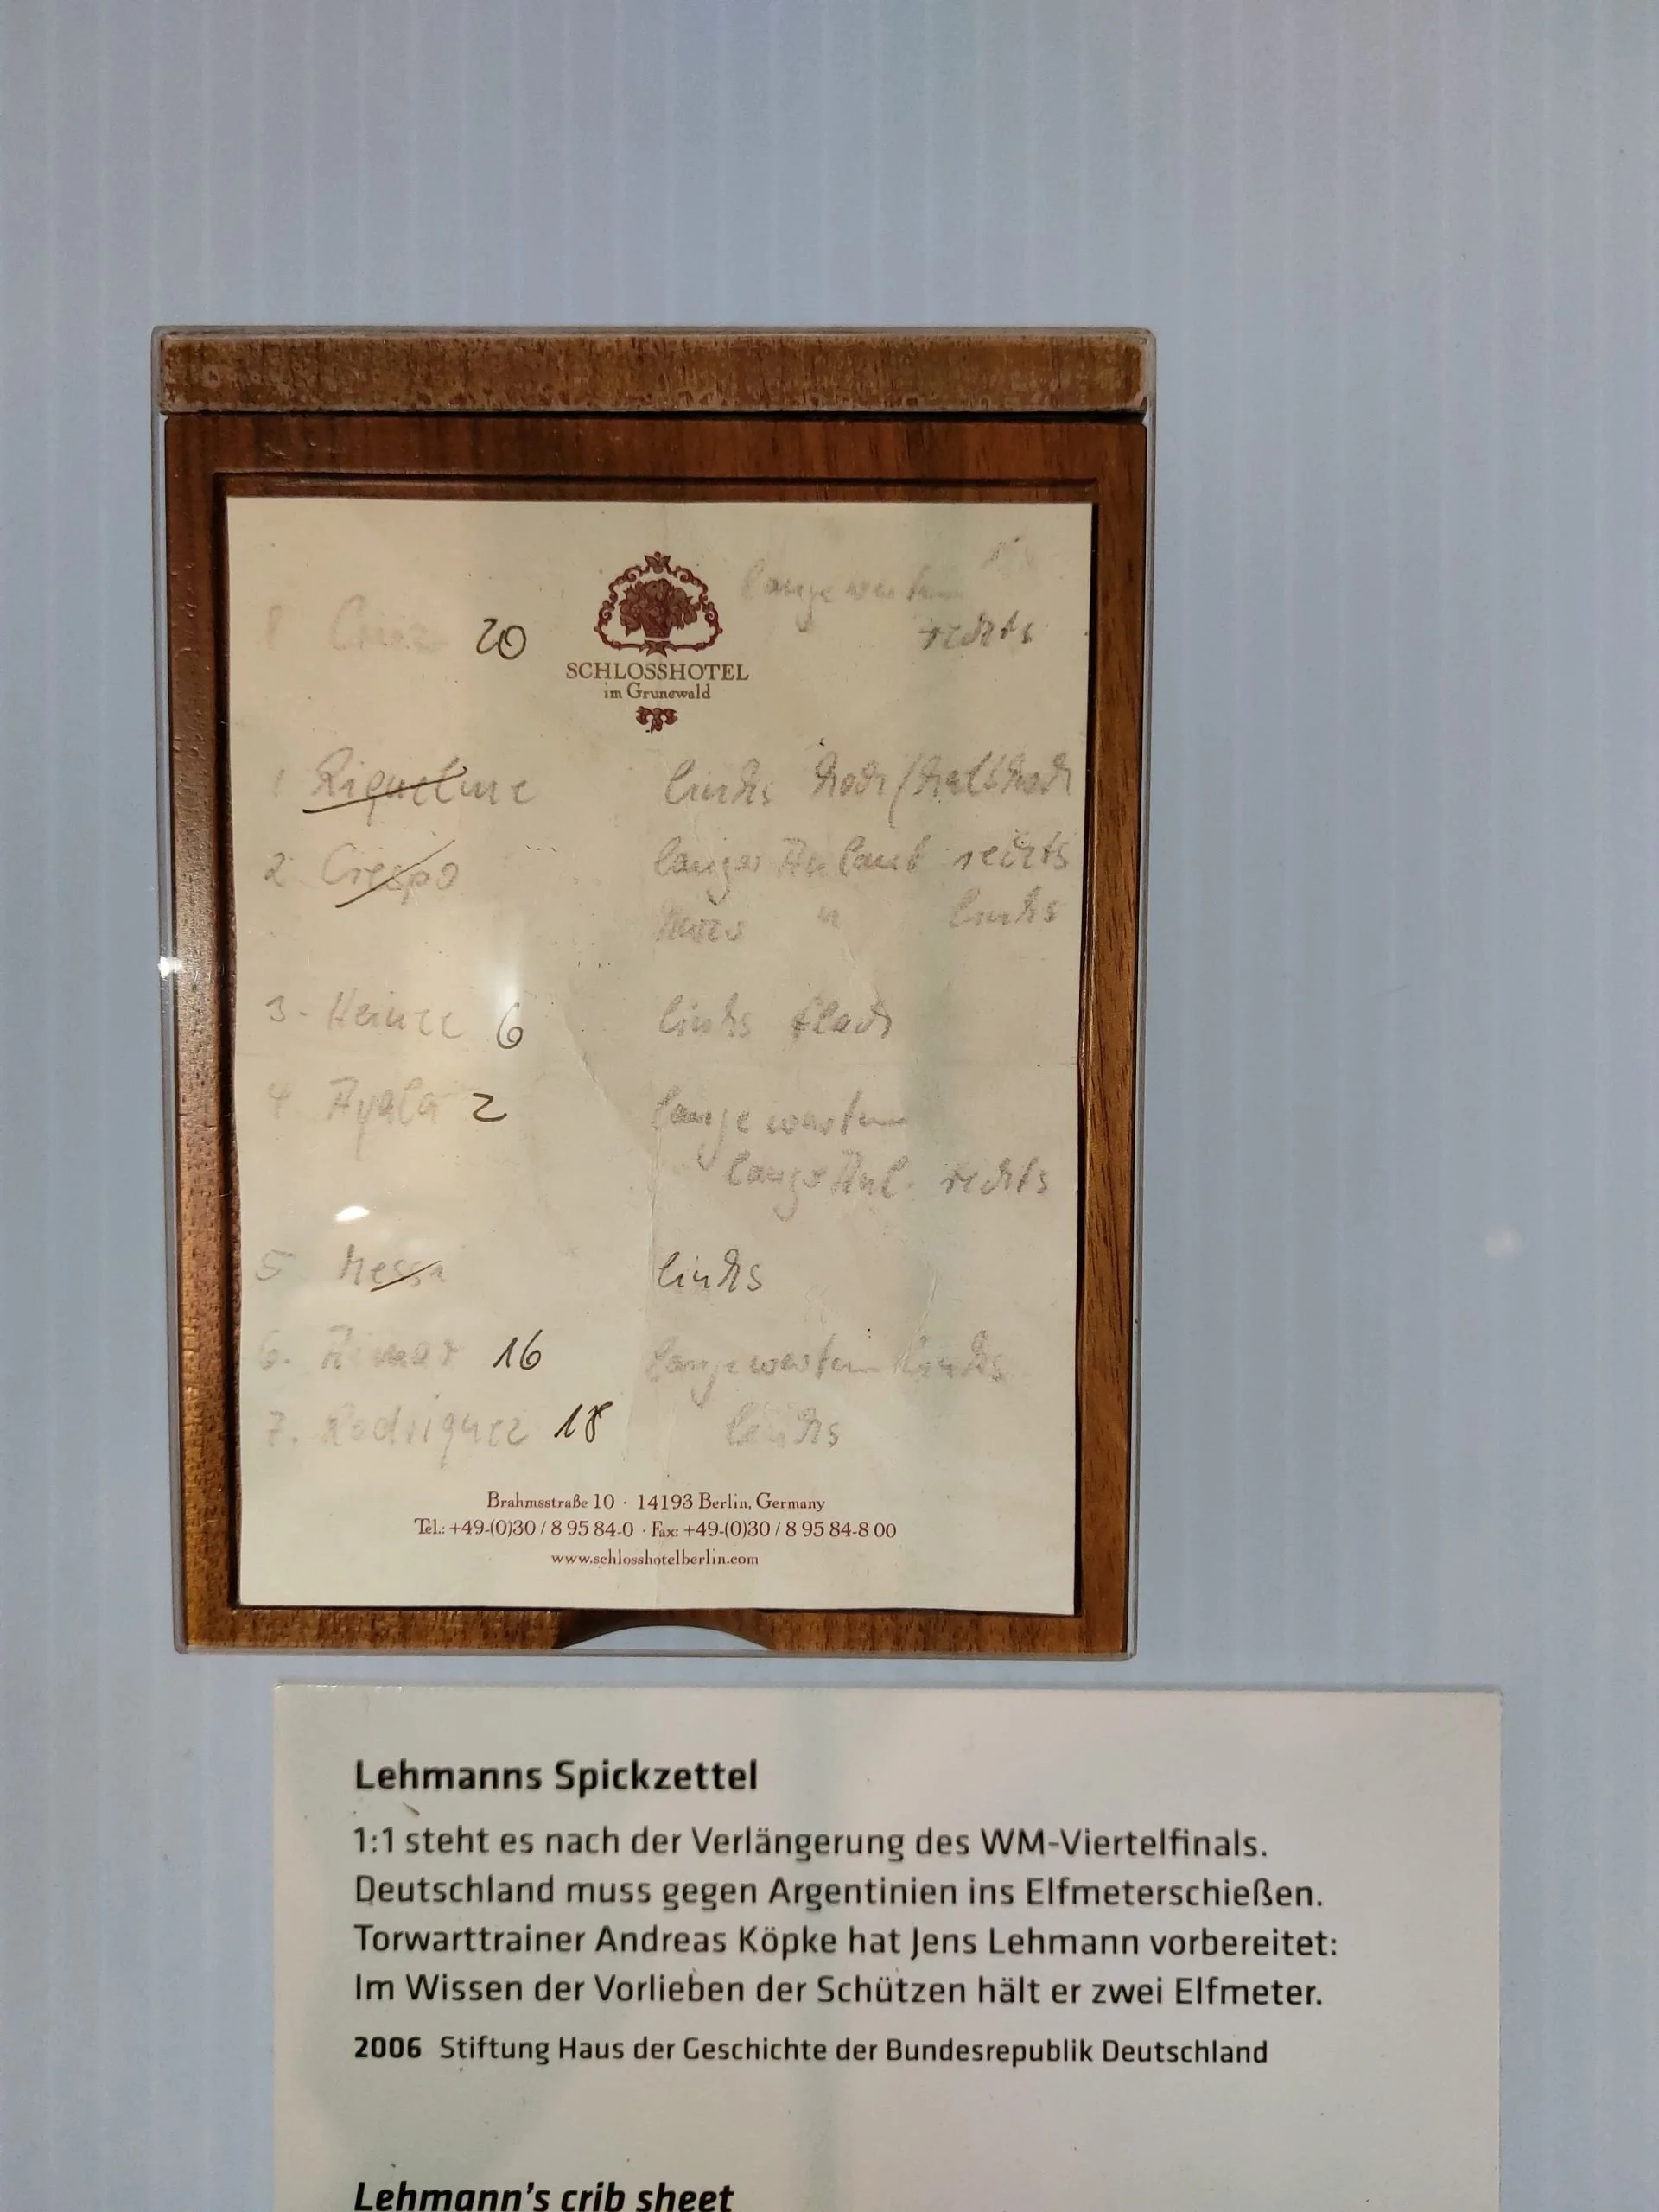 lange warten
8 Cruz 20 rechts
SCHLOSSHOTEL
im Grunewald
1 Riquelme links hoch/halbhoch
2 Crespo langer Anlauf rechts
kurzer " links
3. Heinze 6 links flach
4 Ayala 2 lange warten
langer Anl. rechts
5 Messi links
6. Aimar 16 lange warten links
7. Rodriguez 18 links
Brahmsstraße 10 · 14193 Berlin, Germany
Tel.: +49-(0)30 / 8 95 84-0 · Fax: +49-(0)30 / 8 95 84-8 00
www.schlosshotelberlin.com
Lehmanns Spickzettel
1:1 steht es nach der Verlängerung des WM-Viertelfinals.
Deutschland muss gegen Argentinien ins Elfmeterschießen.
Torwarttrainer Andreas Köpke hat Jens Lehmann vorbereitet:
Im Wissen der Vorlieben der Schützen hält er zwei Elfmeter.
2006 Stiftung Haus der Geschichte der Bundesrepublik Deutschland
Lehmann's crib sheet